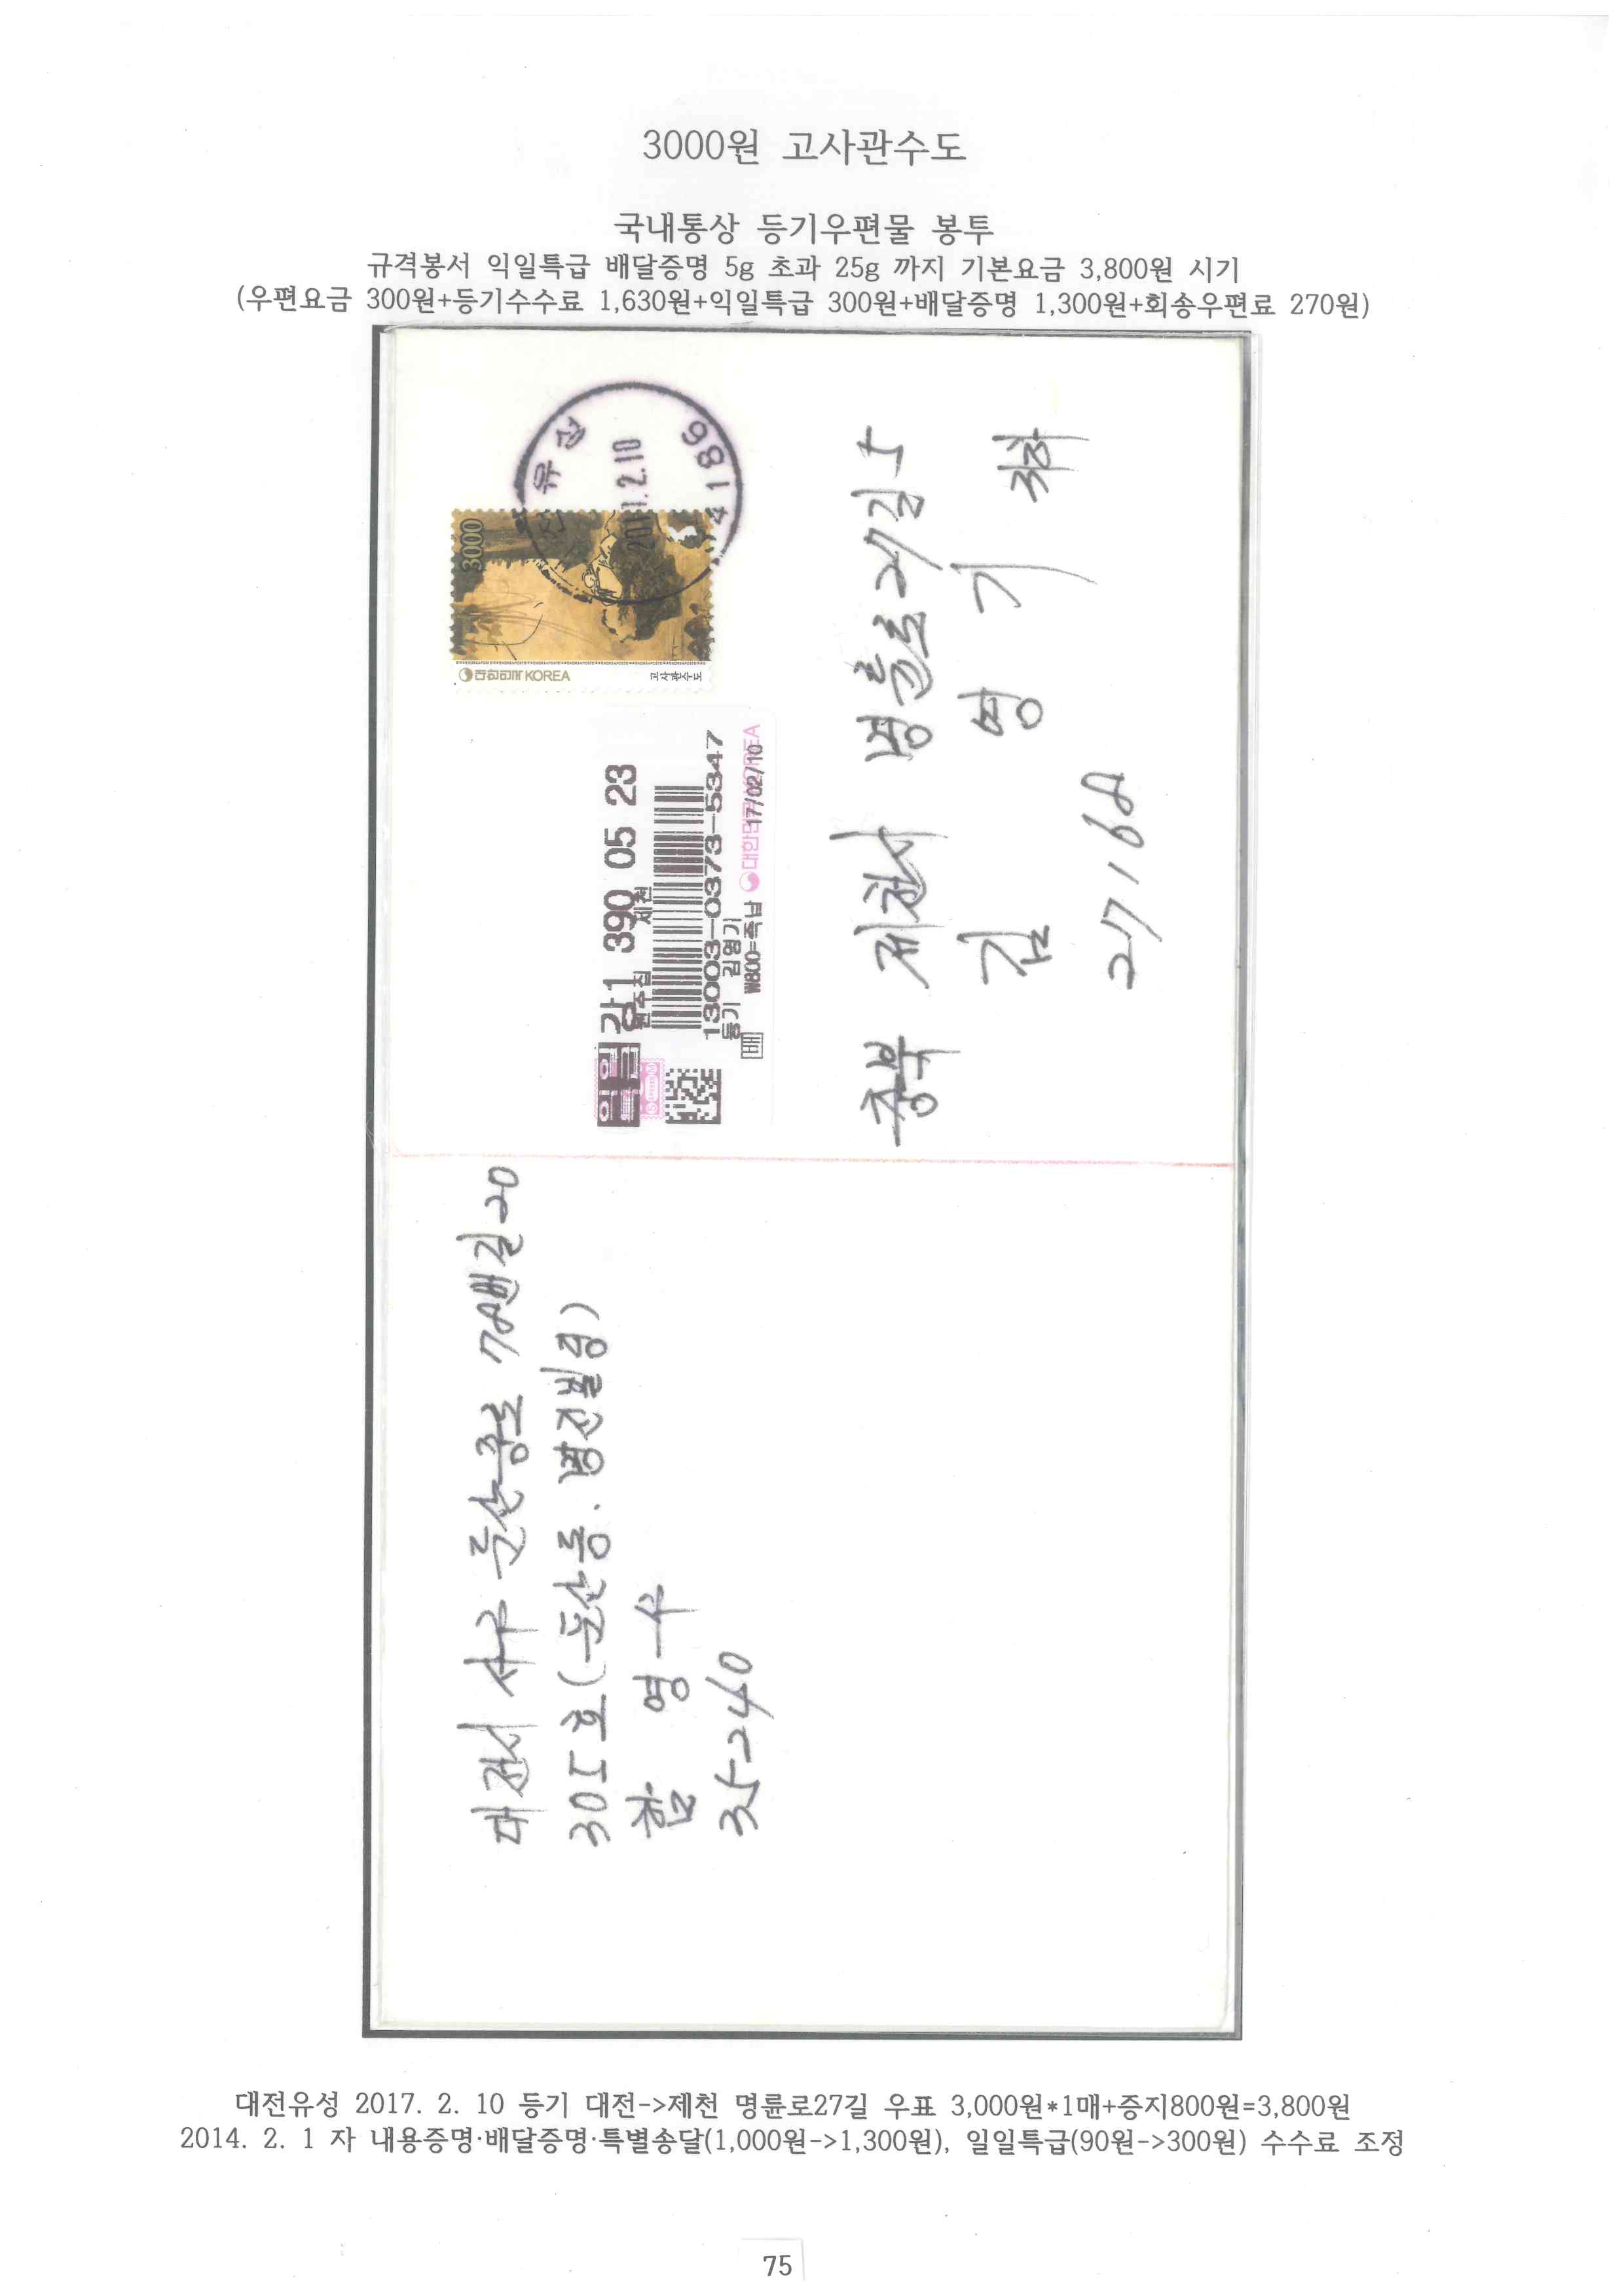 3000원 고사관수도
국내통상 등기우편물 봉투
규격봉서 익일특급 배달증명 5g 초과 25g 까지 기본요금 3,800원 시기
(우편요금 300원+등기수수료 1,630원+익일특급 300원+배달증명 1,300원+회송우편료 270원)
유성
2.10
34186
3000
대한민국 KOREA
고사관수도
익특 감1 390 05 23
원주집 제천
13003-0373-5347
등기 김영기
배 ₩800=즉납 대한민국 KOREA
17/02/10
충북 제천시 명륜로27길 5
김 영 기 귀하
27168
대전시 서구 둔산중로 78번길 20
305호(둔산동. 명진빌딩)
함 영 수
35240
대전유성 2017. 2. 10 등기 대전->제천 명륜로27길 우표 3,000원*1매+증지800원=3,800원
2014. 2. 1 자 내용증명·배달증명·특별송달(1,000원->1,300원), 일일특급(90원->300원) 수수료 조정
75